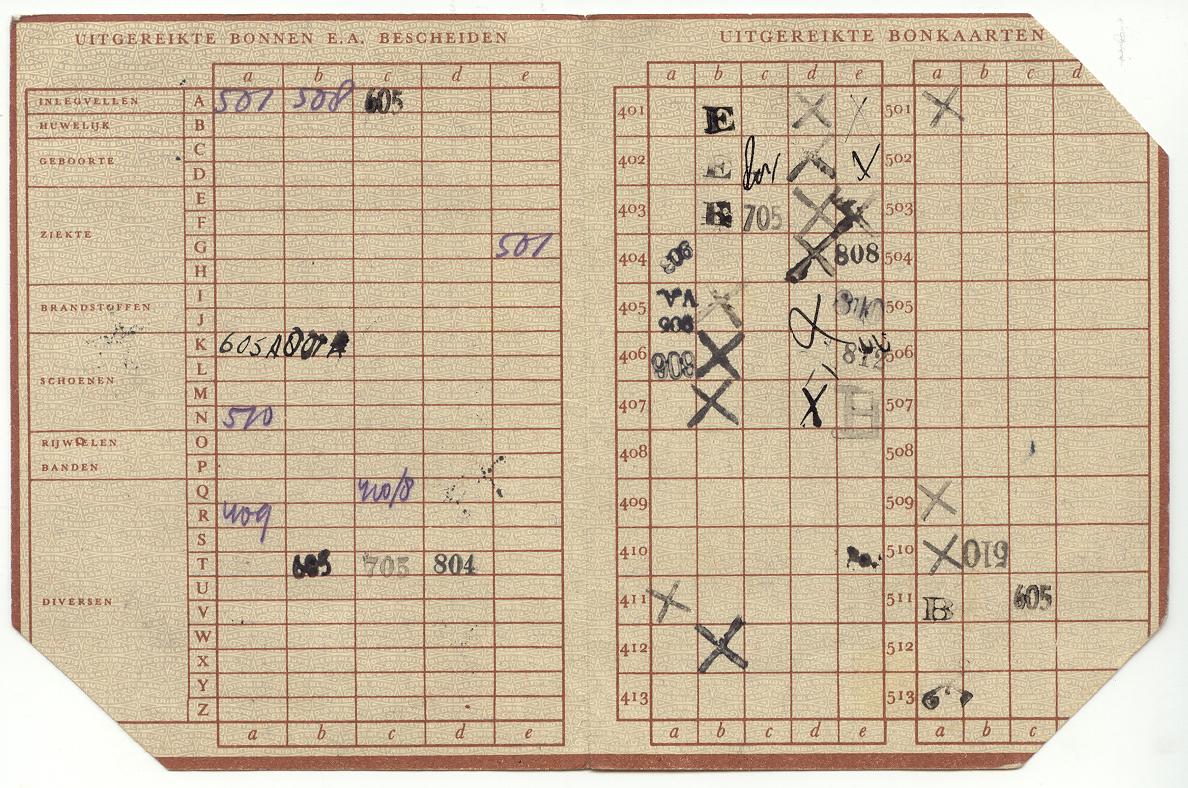 UITGEREIKTE BONNEN E.A. BESCHEIDEN
a b c d e
INLEGVELLEN A 501 508 605
HUWELIJK B
C
GEBOORTE
D
E
F
ZIEKTE
G 501
H
I
BRANDSTOFFEN
J
K 605A
L
SCHOENEN
M
N 510
O
RIJWIELEN
BANDEN P
Q 410/8
R 409
S
T 605 705 804
U
DIVERSEN
V
W
X
Y
Z
a b c d e
UITGEREIKTE BONKAARTEN
a b c d e a b c d
401 E X X 501 X
402 E X X 502
403 E 705 X 503
404 806 X 808 504
405 VA 806 X 505
406 908 X 812 506
407 X X H 507
408 508
409 509 X
410 510 X 610
411 X 511 B 605
412 X 512
413 513
a b c d e a b c